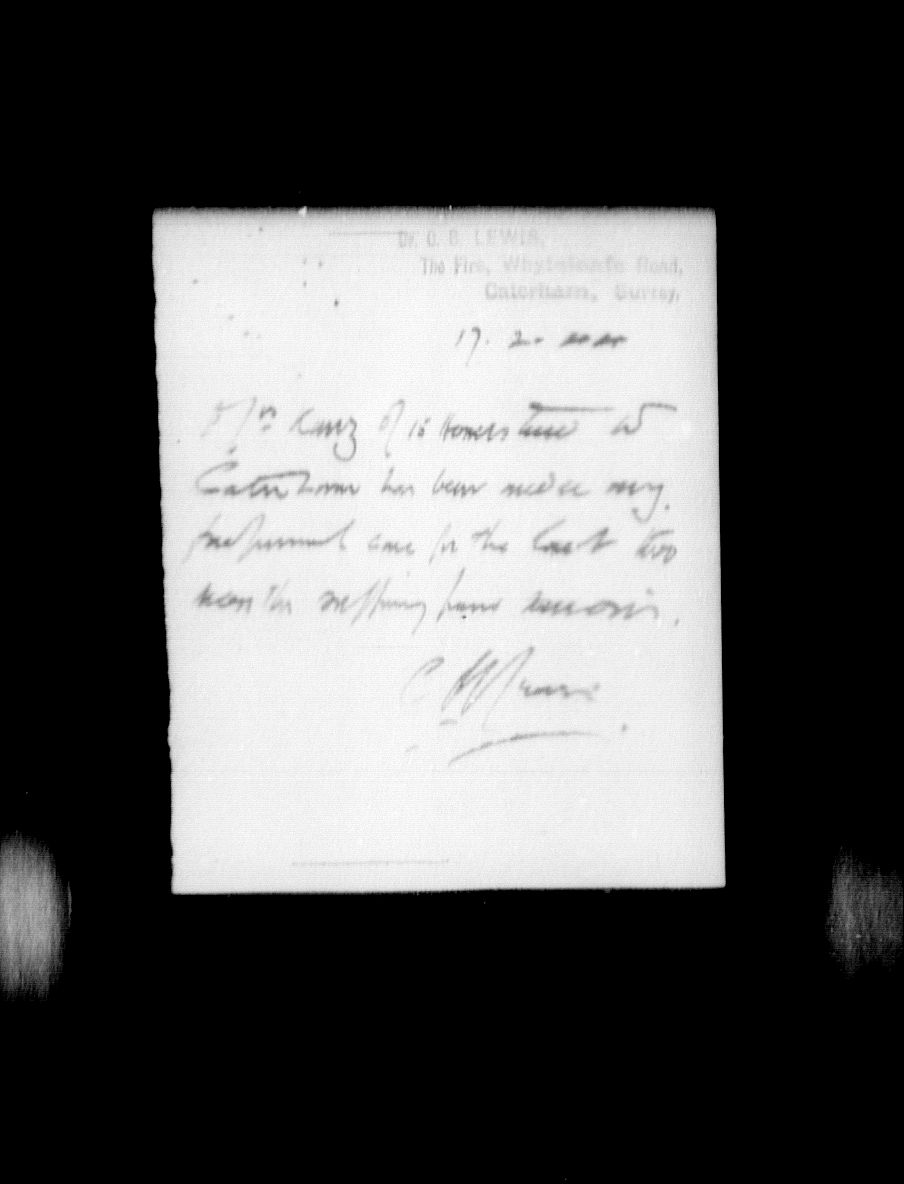 Dr. O. B. LEWIS,
The Firs, Whyteleafe Road,
Caterham, Surrey,
17. 2.
Mrs of 16
Caterham has been under my
professional care for the last two
months suffering from